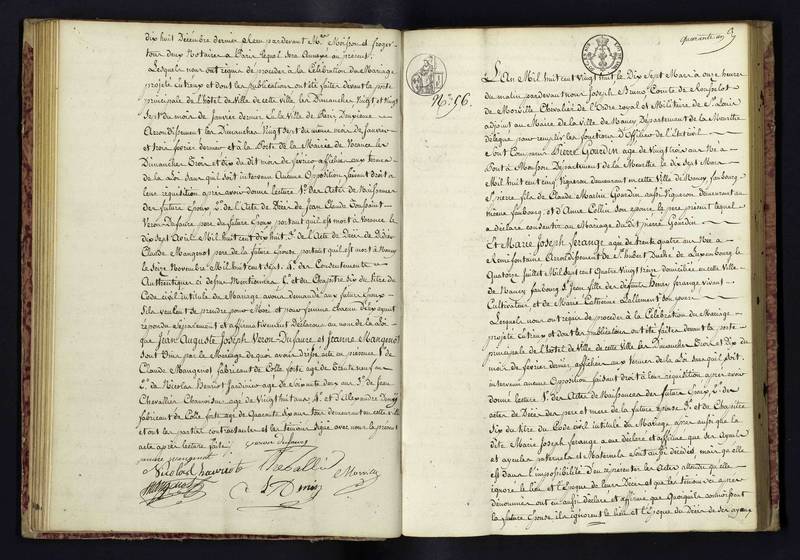 dix huit Décembre dernier et en pardevant Mes Moisson et Froger
tous deux Notaires à Paris lequel sera Annexé au présent.
Lesquels nous ont requis de procéder à la Célébration du Mariage
projeté entr'eux et dont les publications ont été faites devant la porte
principale de l'hôtel de Ville de cette ville les Dimanches Vingt et Vingt
Sept du mois de janvier dernier et la Ville de Paris Deuxième
Arrondissement les Dimanches Vingt sept du même mois de janvier
et trois février dernier et à la Porte de la Mairie de les
Dimanches Trois et dix du dit mois de février affichées aux termes
de la Loi sans qu'il soit intervenu Aucune Opposition faisant droit à
leur réquisition après avoir donné lecture 1° des Actes de Naissances
des futurs Epoux 2° de l'Acte de Décès de Jean Claude Toussaint
Veron-Dufaure père du futur Epoux portant qu'il est mort à
dix sept Avril Mil huit cent dix huit 3° de l'Acte de Décès de Didier
Claude Mangenot père de la future Epouse portant qu'il est mort à Nancy
le Seize Novembre Mil huit cent Sept 4° des Consentements
Authentiques ci dessus Mentionnés 5° et du Chapitre Six du titre du
Code civil intitulé du Mariage avons demandé aux futurs Epoux
s'ils veulent se prendre pour Mari et pour femme chacun D'eux ayant
répondu séparément et affirmativement Déclarons au nom de la Loi
que Jean Auguste Joseph Veron-Dufaure et Jeanne Mangenot
sont Unis par le Mariage de quoi avons dressé acte en présence 1° de
Claude Mangenot fabricant de Colle forte agé de Trente sept ans
2° de Nicolas Henriot Jardinier agé de Soixante deux ans 3° de Jean
Chevallier Chamoiseur agé de Vingt huit ans 4° et d'Alexandre Denis
fabricant de Colle forte agé de Quarante six ans tous demeurant en cette ville
et ont les parties contractantes et les témoins signé avec nous le présent
acte après lecture faite.
veron dufaure
jeanne mangenot
Nicolas henriot
Chevallier
Mangenot
Denis
Quarante
N° 56.
L'An Mil huit cent Vingt huit le Dix Sept Mars à onze heures
du matin pardevant nous Joseph Bruno Comte de
de Morville Chevalier de l'Ordre royal et Militaire de St Louis
adjoint au Maire de la Ville de Nancy Département de la Meurthe
délégué pour remplir les fonctions d'Officier de l'Etat civil
sont Comparus Pierre Gourdin agé de Vingt trois ans Né à
Pont à Mousson Département de la Meurthe le dix sept Mars
Mil huit cent cinq Vigneron demeurant en cette Ville de Nancy faubourg
St pierre fils de Claude Martin Gourdin aussi Vigneron demeurant au
même faubourg et d'Anne Collin son épouse le père présent lequel
a déclaré consentir au Mariage du dit pierre Gourdin
Et Marie Joseph Ferange agée de trente quatre ans Née à
Remi fontaine Arrondissement de St hubert Duché de Luxembourg le
Quatorze Juillet Mil Sept cent Quatre Vingt treize Domiciliée en cette Ville
de Nancy faubourg St Jean fille des défunts Henri ferange vivant
Cultivateur, et de Marie Catherine Lallement son épouse
Lesquels nous ont requis de procéder à la Célébration du Mariage
projeté entr'eux et dont les publications ont été faites devant la porte
principale de l'hôtel de Ville de cette Ville les Dimanches Trois et Dix du
mois de février dernier, affichées aux termes de la Loi sans qu'il soit
intervenu aucune Opposition faisant droit à leur réquisition après avoir
donné lecture 1° des Actes de Naissances des futurs Epoux, 2° des
actes de Décès des pere et mere de la future épouse 3° et du Chapitre
Six du titre du Code civil intitulé du Mariage après aussi que la
dite Marie Joseph ferange a eu déclaré et affirmé que ses Ayeuls
et ayeules paternels et Maternels sont aussi décédés, mais qu'elle
est dans l'impossibilité d'en représenter les Actes attendu qu'elle
ignore le lieu et l'époque de leurs Décès et que les témoins ci après
dénommés ont eu aussi déclaré et affirmé que Quoiqu'ils connoissent
la future Epouse ils ignorent le lieu et l'époque du Décès de ses ayeuls